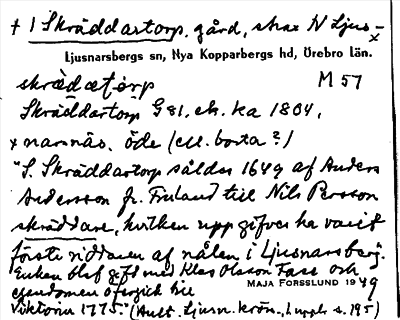 † 1 Skräddartorp, gård, strax N Ljus-
Ljusnarsbergs sn, Nya Kopparbergs hd, Örebro län.
skrädatórp M 57
Skräddartorp G 81, ek. ka 1804,
x narsnäs. öde (ell. borta?)
"S. Skräddartorp såldes 1649 af Anders
Andersson fr. Finland till Nils Persson
skräddare, hvilken uppgifves ha varit
förste riddaren af nålen i Ljusnarsberg.
Enkan Olof gift med Klas Olsson Fase och
egendomen öfvergick till
MAJA FORSSLUND 1949
Viktorin 1775." (Hult. Ljusn. krön., s. 195)